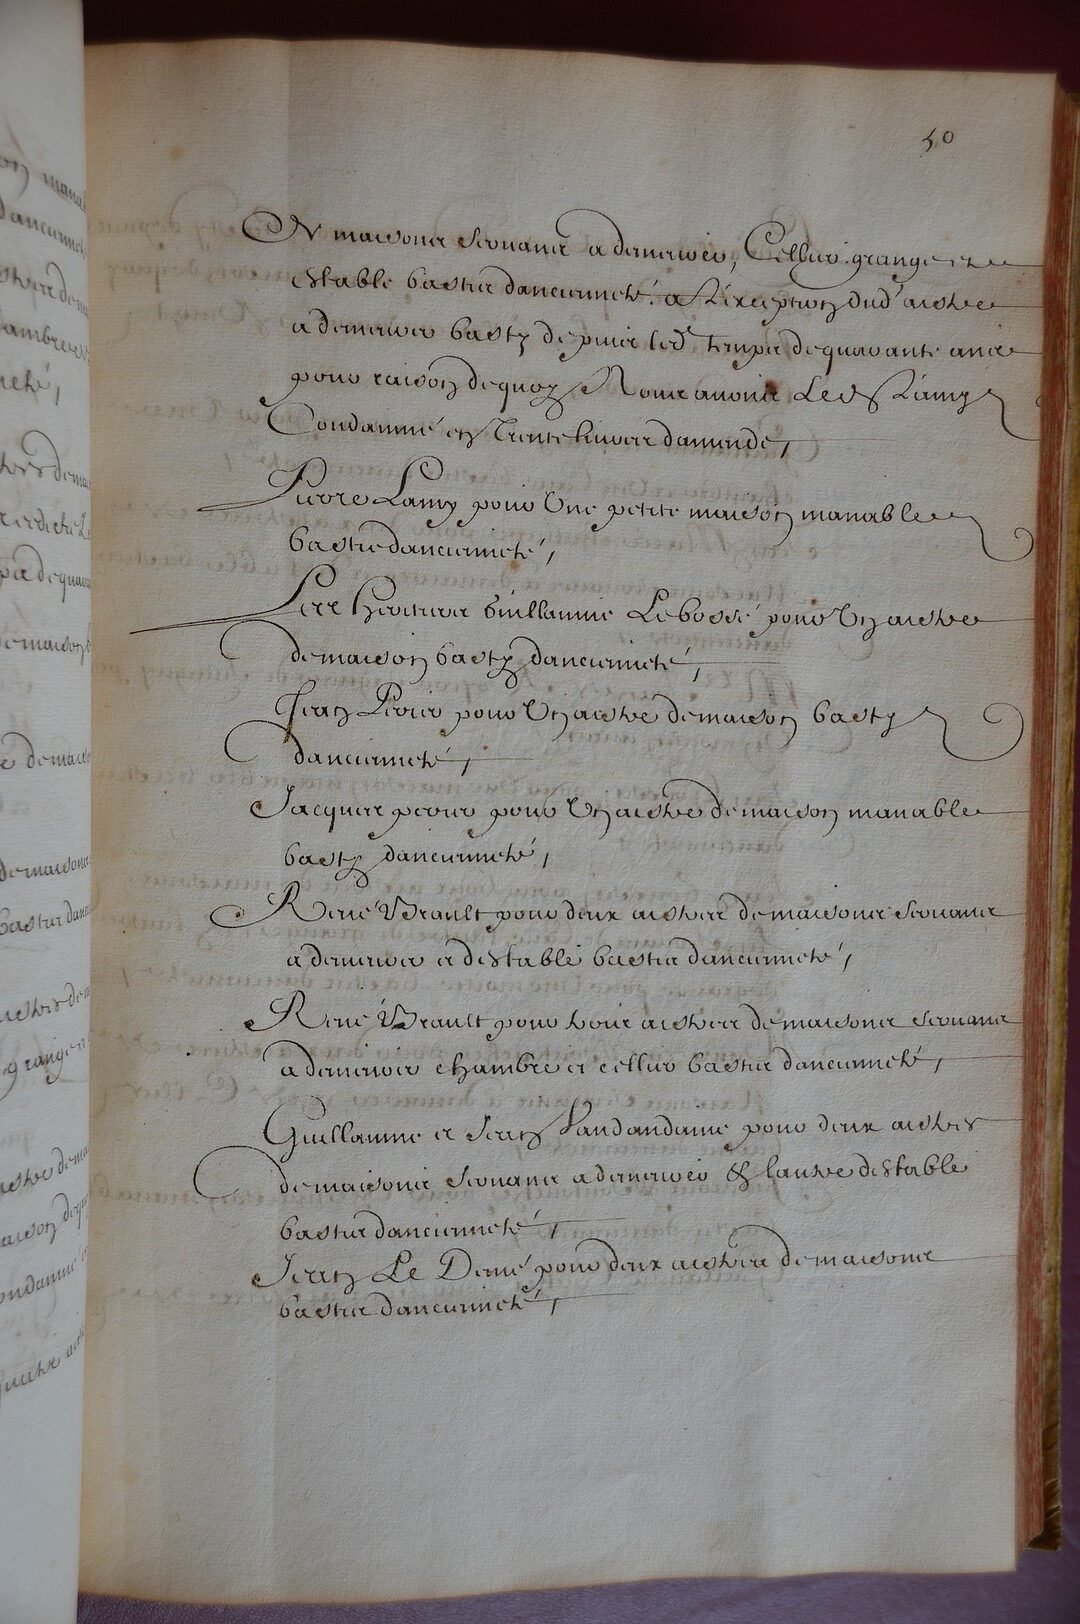 50
De maisons servans a demeurer, Cellier grange et
estable bastis dancienneté. a Lexception dud' aistre
a demeurer basty depuis led' temps de quarante ans
pour raison de quoy Nous avons Led. Lamy
Condamné en Trente livres damende,
Pierre Lamy pour Une petite maison manable
bastie dancienneté,
Les heritiers Guillaume Le bossé pour Un aistre
de maison basty dancienneté,
Jean Perier pour Un aistre de maison basty
dancienneté,
Jacques perier pour Un aistre de maison manable
basty dancienneté,
René Vrault pour deux aistres de maisons servans
a demeurer et destable bastis dancienneté,
René Vrault pour trois aistres de maisons servans
a demeurer chambre et cellier bastis dancienneté,
Guillaume et Jean Vandandaine pour deux aistres
de maisons servans a demeurer & lautre destable
bastis dancienneté,
Jean Le Demé pour deux aistres de maisons
bastis dancienneté,